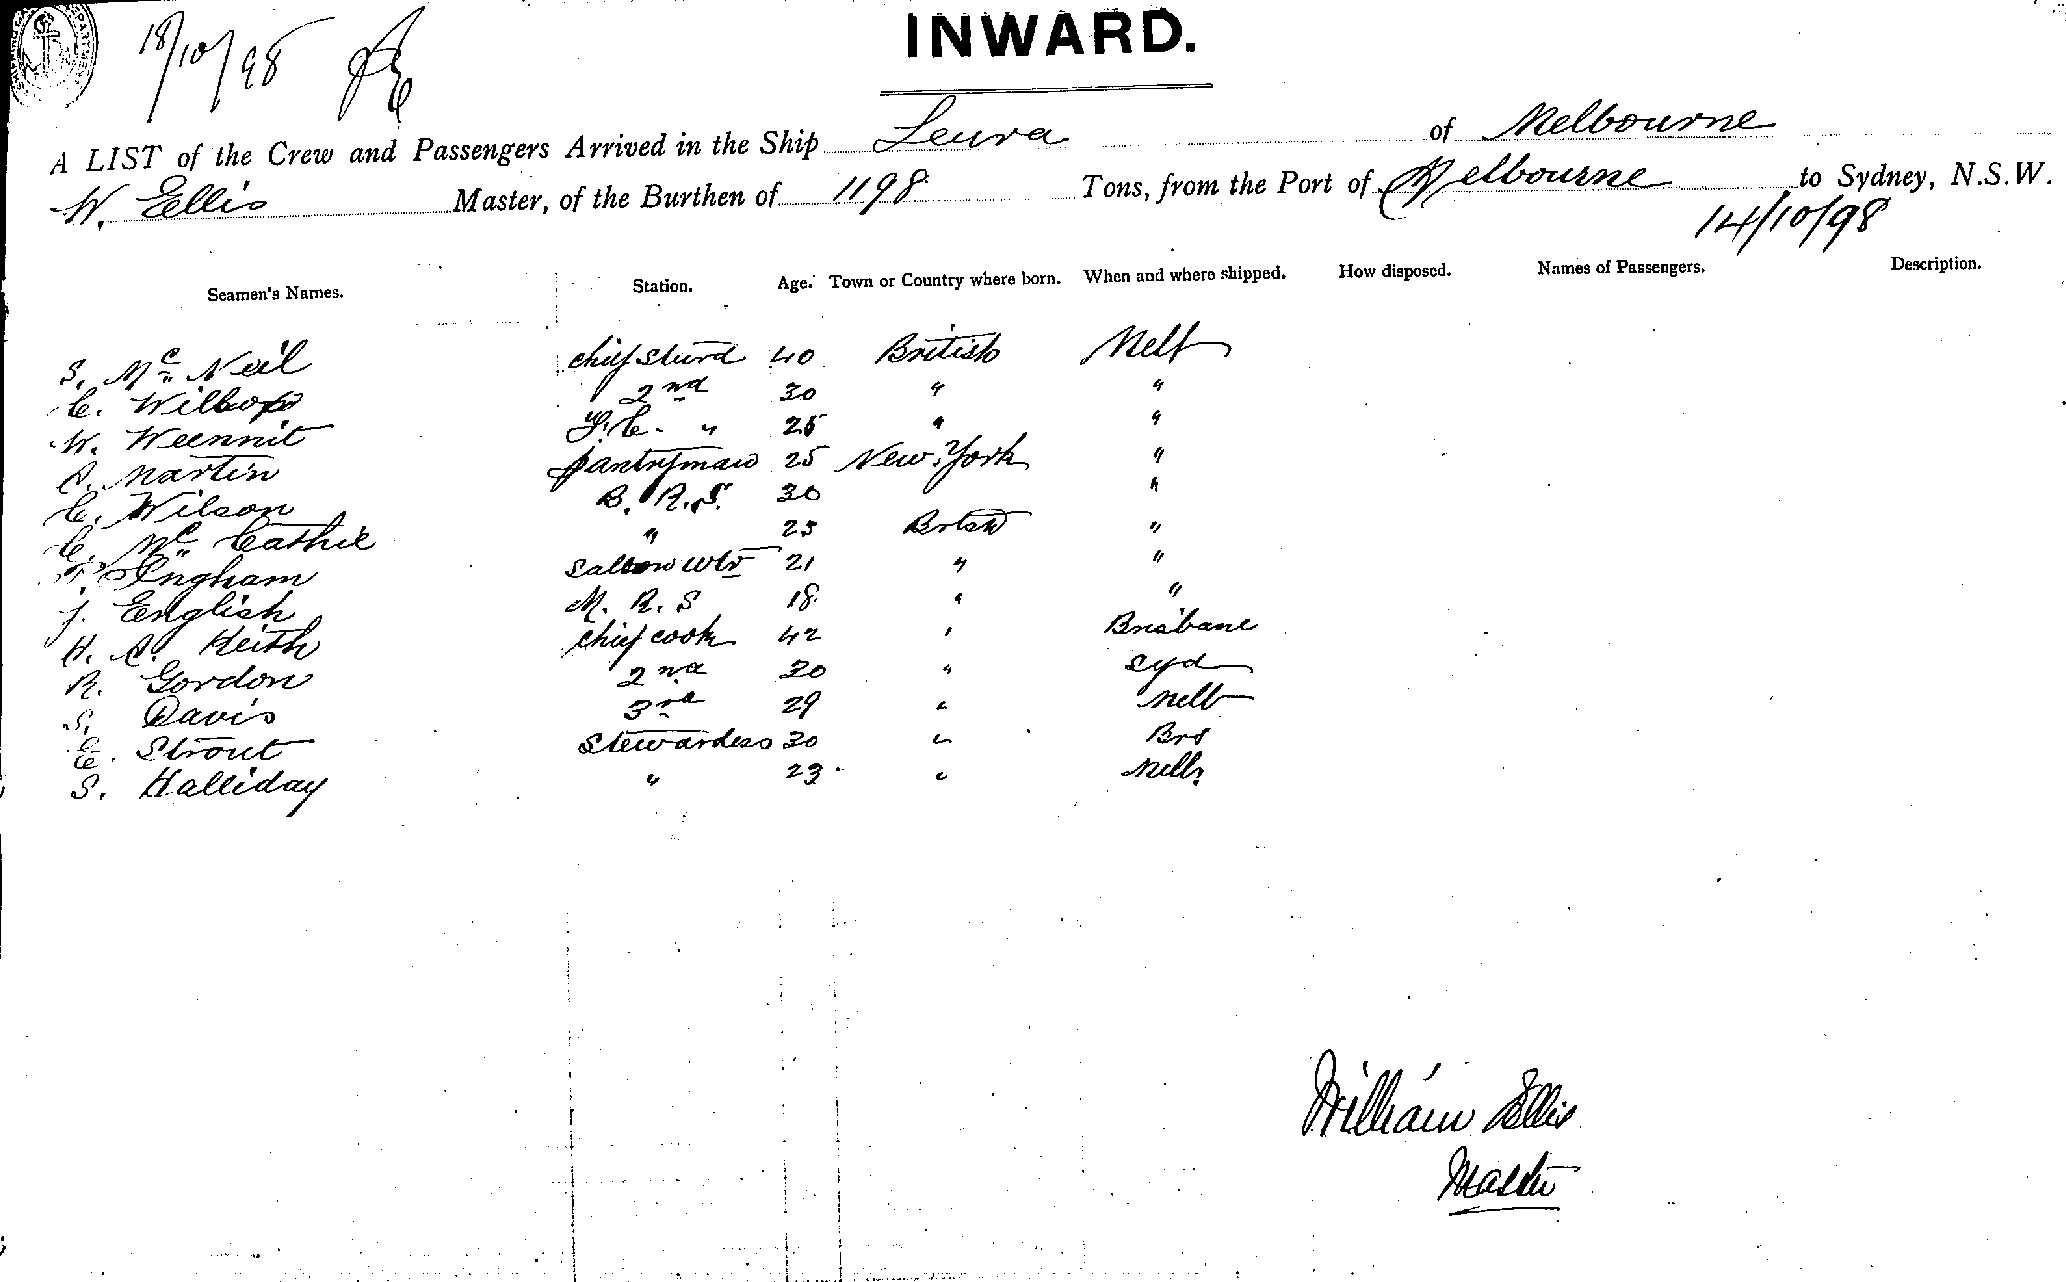 18/10/98
INWARD.
A LIST of the Crew and Passengers Arrived in the Ship Leura of Melbourne
W. Ellis Master, of the Burthen of 1198 Tons, from the Port of Melbourne to Sydney, N.S.W.
14/10/98
Seamen's Names. Station. Age. Town or Country where born. When and where shipped. How disposed. Names of Passengers. Description.
S. Mc Neil chief Sturd 40 British Melb
C. 2nd 30 " "
W. Weennit F.C. " 25 " "
A. Martin pantryman 25 New York "
C. Wilson B. R. S. 30 "
C. Mc Cathie " 25 "
T. Ingham Saloon Wtr 21 " "
J. English M. R. S 18 " "
H. A. Keith chief cook 42 " Brisbane
R. Gordon 2nd 30 " Syd
S. Davis 3rd 29 " Melb
E. Strout Stewardess 30 " Brs
S. Halliday " 23 " Melb
William Ellis
Master